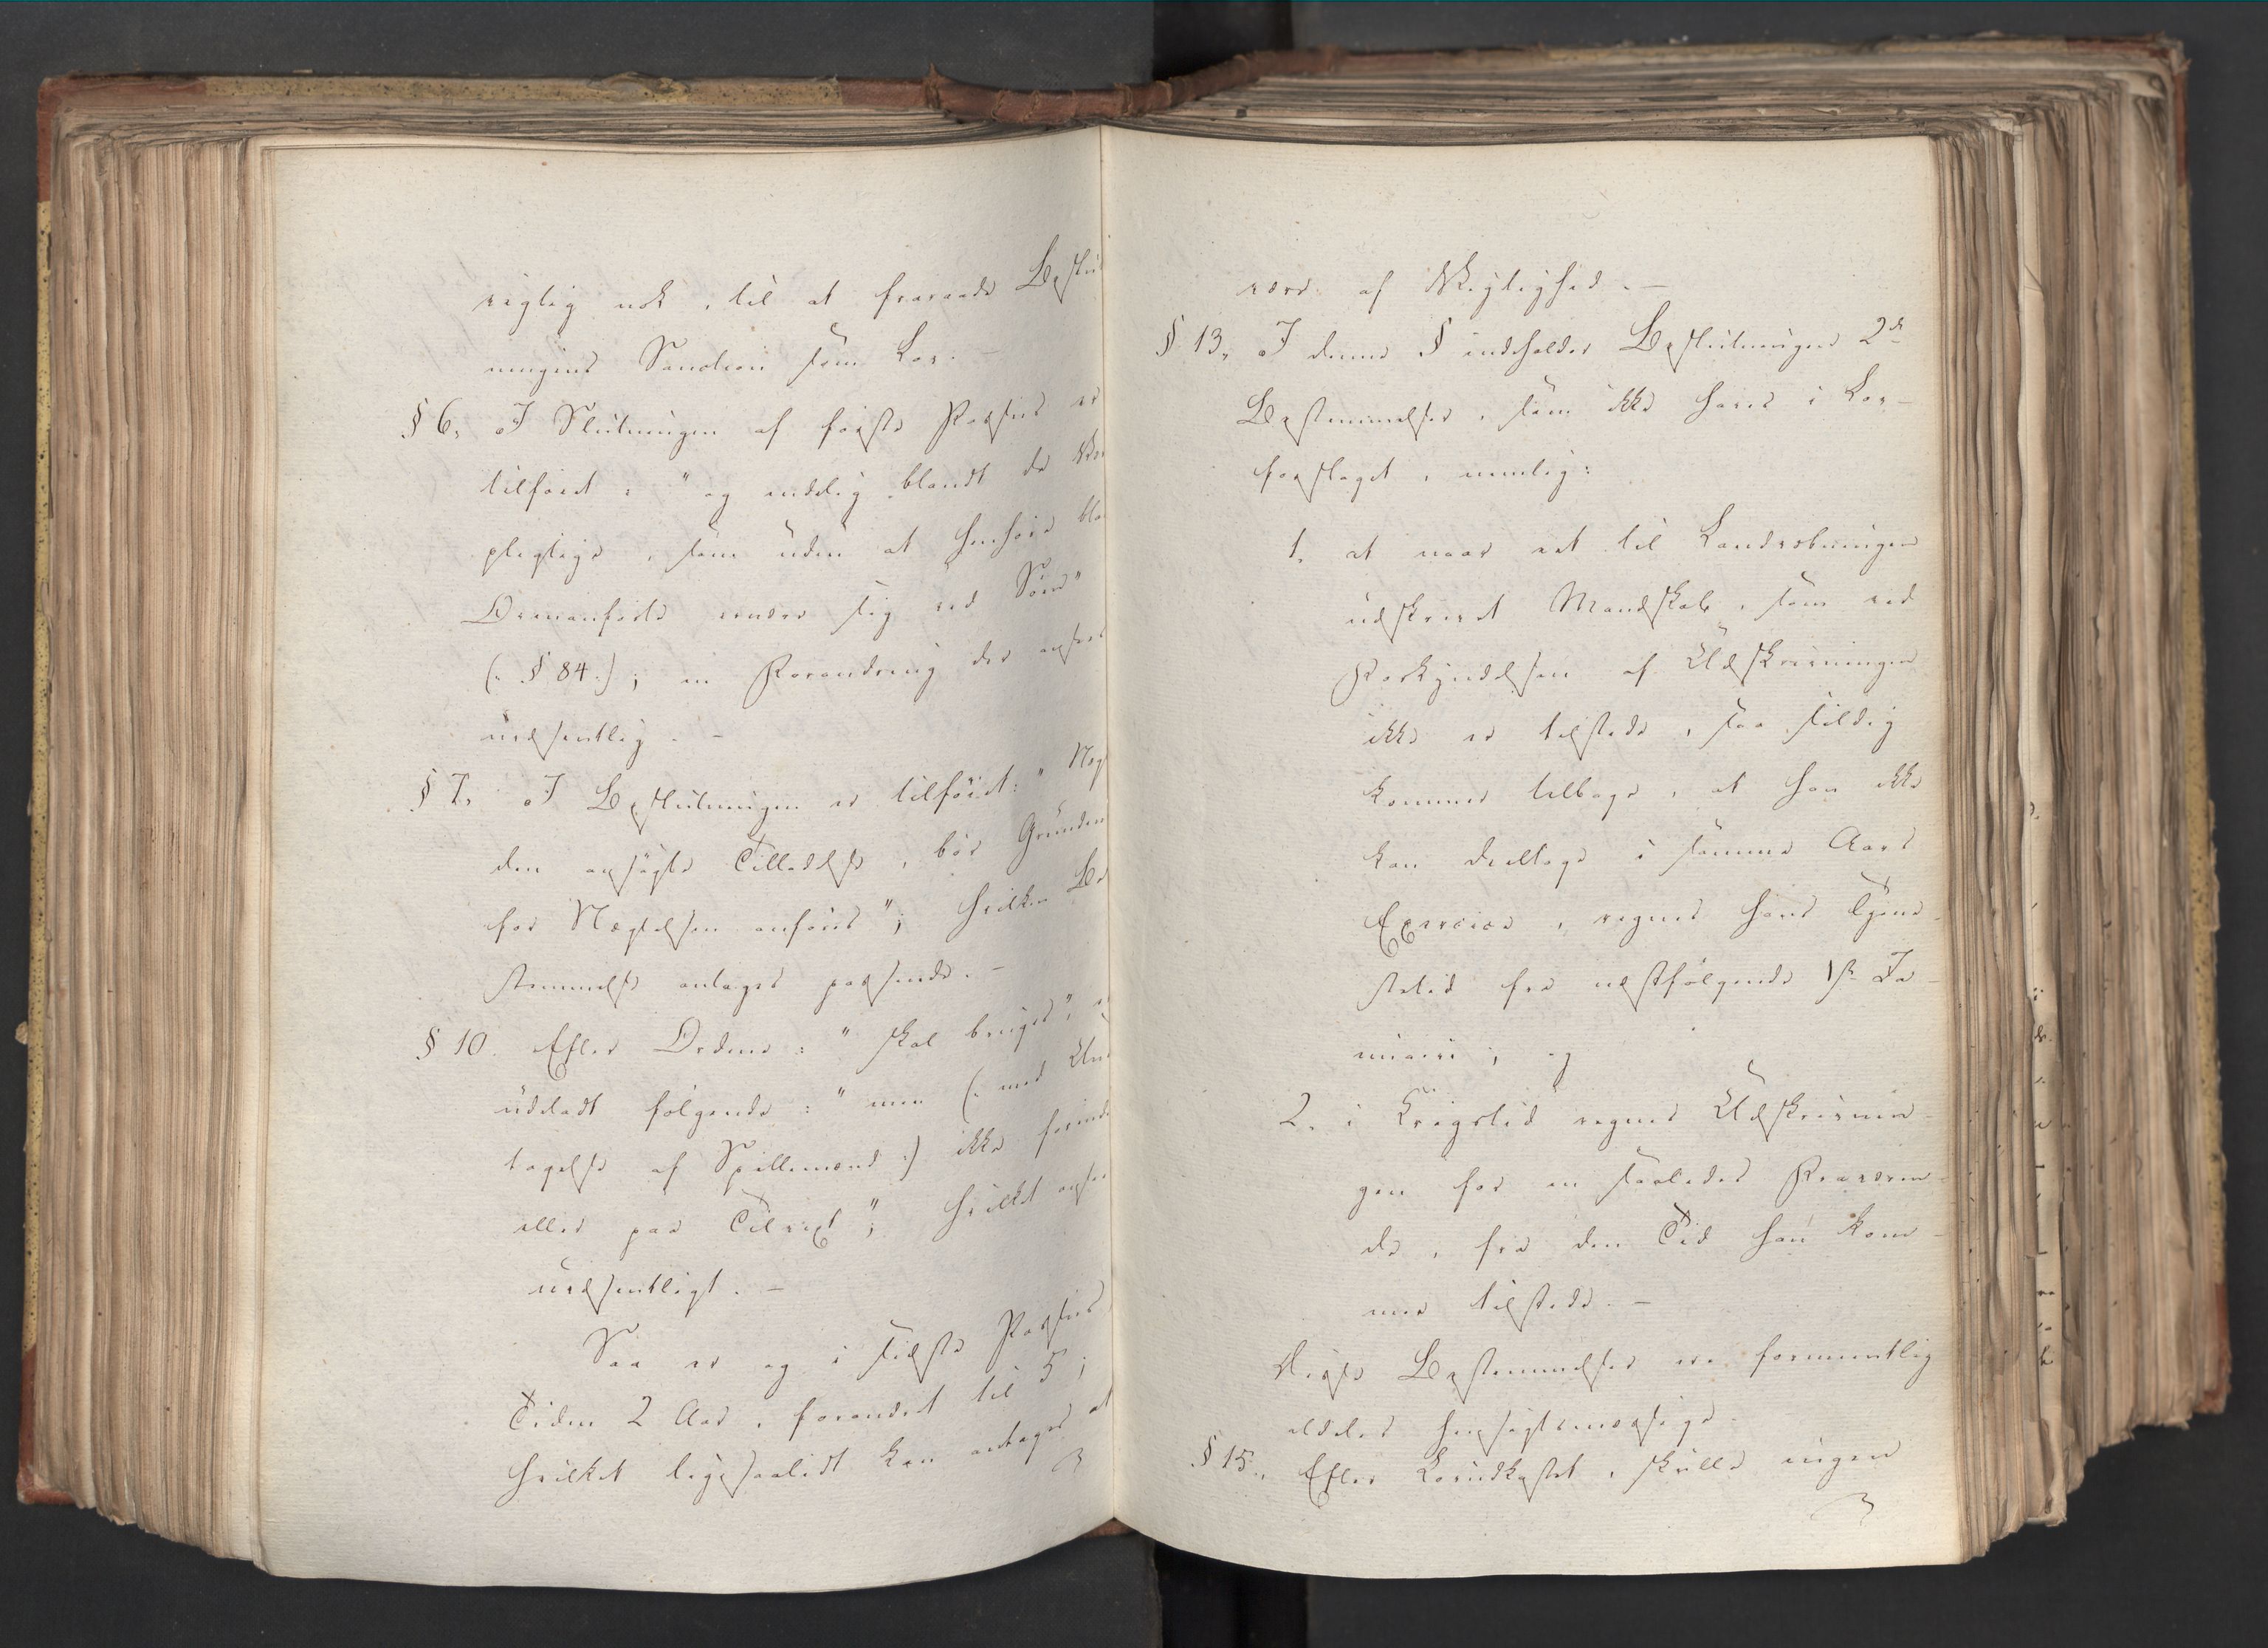 vigtig nok, til at fraraade Beslut
ningens Sanction som Lov. –
§ 6, I Slutningen af første Passus er
tilføiet: "og endelig blandt de Vær
pligtige, som uden at henhøre bla
ernære sig ved Søen"
(: § 84 :); en Forandring der ansees
uvæsentlig. –
§ 7, I Beslutningen er tilføiet: "Nægt
den ansøgte Tilladelse, bør Grunden
for Nægtelsen anføres"; hvilken Be
stemmelse antages passende. –
§ 10. Efter Ordene: "skal bruges", er
udeladt følgende: "men (: med Und
tagelse af Spillemænd :) ikke forinde
eller paa Tilvext"; hvilket ansees
uvæsentligt. –
Saa er og i sidste Passus
Tiden 2 Aar, forandret til 5;
hvilket ligesaalidt kan antages at
være af Vigtighed. –
§ 13, I denne § indeholder Beslutningen 2de
Bestemmelser, som ikke haves i Lov-
forslaget, nemlig:
1, at naar et til Landvæbningen
udskrevet Mandskab, som ved
Forkyndelsen af Udskrivningen
ikke er tilstede, saa sildig
kommer tilbage, at han ikke
kan deeltage i samme Aars
Exercice, regnes hans Tjene-
stetid fra næstfølgende 1ste Ja-
nuarii; og
2, i Krigstid regnes Udskrivnin-
gen for en saaledes Fraværen-
de, fra den Tid han kom-
mer tilstede. –
Disse Bestemmelser ere formeentlig
aldeles hensigtsmæssige.
§ 15, Efter Lovudkastet, skulle ingen